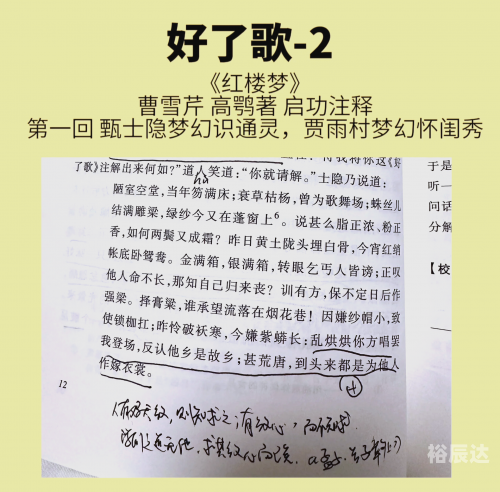 好了歌-2
《红楼梦》
曹雪芹 高鹗著 启功注释
第一回 甄士隐梦幻识通灵，贾雨村梦幻怀闺秀
了歌》注解出来何如？”道人笑道：“你就请解。”士隐乃说道：
陋室空堂，当年笏满床；衰草枯杨，曾为歌舞场；蛛丝儿
结满雕梁，绿纱今又在蓬窗上⁶。说甚么脂正浓、粉正
香，如何两鬓又成霜？昨日黄土陇头埋白骨，今宵红绡
帐底卧鸳鸯。金满箱，银满箱，转眼乞丐人皆谤；正叹
他人命不长，那知自己归来丧？训有方，保不定日后作
强梁。择膏粱，谁承望流落在烟花巷！因嫌纱帽小，致
使锁枷扛；昨怜破袄寒，今嫌紫蟒长：乱烘烘你方唱罢
我登场，反认他乡是故乡；甚荒唐，到头来都是为他人
作嫁衣裳。
12
于是
听一
问话
分解
【校
裕辰达